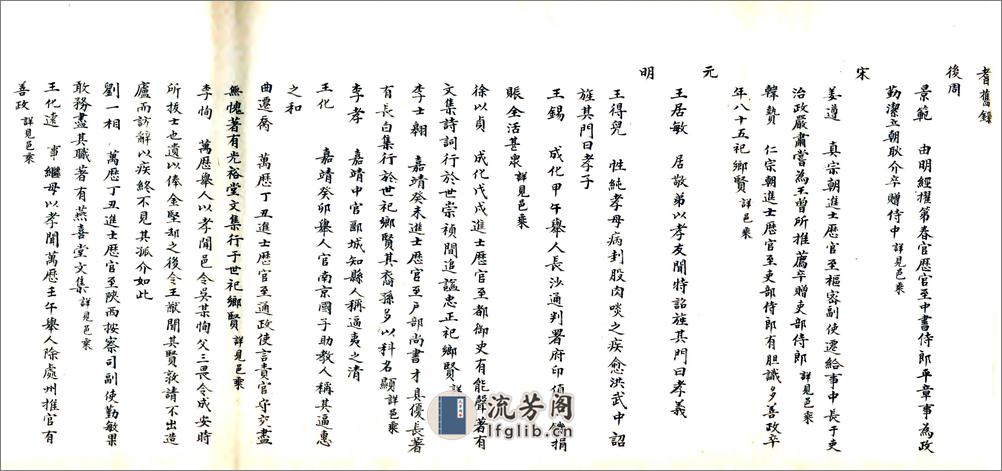 耆舊錄
後周
景範 由明經擢第春官歷官至中書侍郎平章事為政
勤潔立朝耿介卒贈侍中詳見邑乘
宋
姜遵 真宗朝進士歷官至樞密副使遷給事中長于吏
治政嚴肅嘗為王曾所推薦卒贈吏部侍郎詳見邑乘
韓贄 仁宗朝進士歷官至吏部侍郎有胆識多善政卒
年八十五祀鄉賢詳見邑乘
元
王居敏 居敬弟以孝友聞特詔旌其門曰孝義
明
王得兒 性純孝母病刲股肉啖之疾愈洪武中詔
旌其門曰孝子
王錫 成化甲午舉人長沙通判署府印值捐
賑全活甚衆詳見邑乘
徐以貞 成化戊戌進士歷官至都御史有能聲著有
文集詩詞行於世崇禎間追諡忠正祀鄉賢詳
李士翱 嘉靖癸未進士歷官至户部尚書才具優長著
有長白集行於世祀鄉賢其裔孫多以科名顯詳邑乘
李孝 嘉靖中官郾城知縣人稱逼夷之清
王化 嘉靖癸卯舉人官南京國子助教人稱其逼惠
之和
曲遷喬 萬歷丁丑進士歷官至通政使言責官守克盡
無愧著有光裕堂文集行于世祀鄉賢詳見邑乘
李恂 萬歷舉人以孝聞邑令吳某恂父三畏令成安時
所拔士也遺以俸金堅却之後令王猷聞其賢敦請不出造
廬而訪辭以疾終不見其孤介如此
劉一相 萬歷丁丑進士歷官至陝西按察司副使勤敏果
敢務盡其職著有燕喜堂文集詳見邑乘
王化遠 事繼母以孝聞萬歷壬午舉人除處州推官有
善政詳見邑乘
流芳阁
lfglib.cn